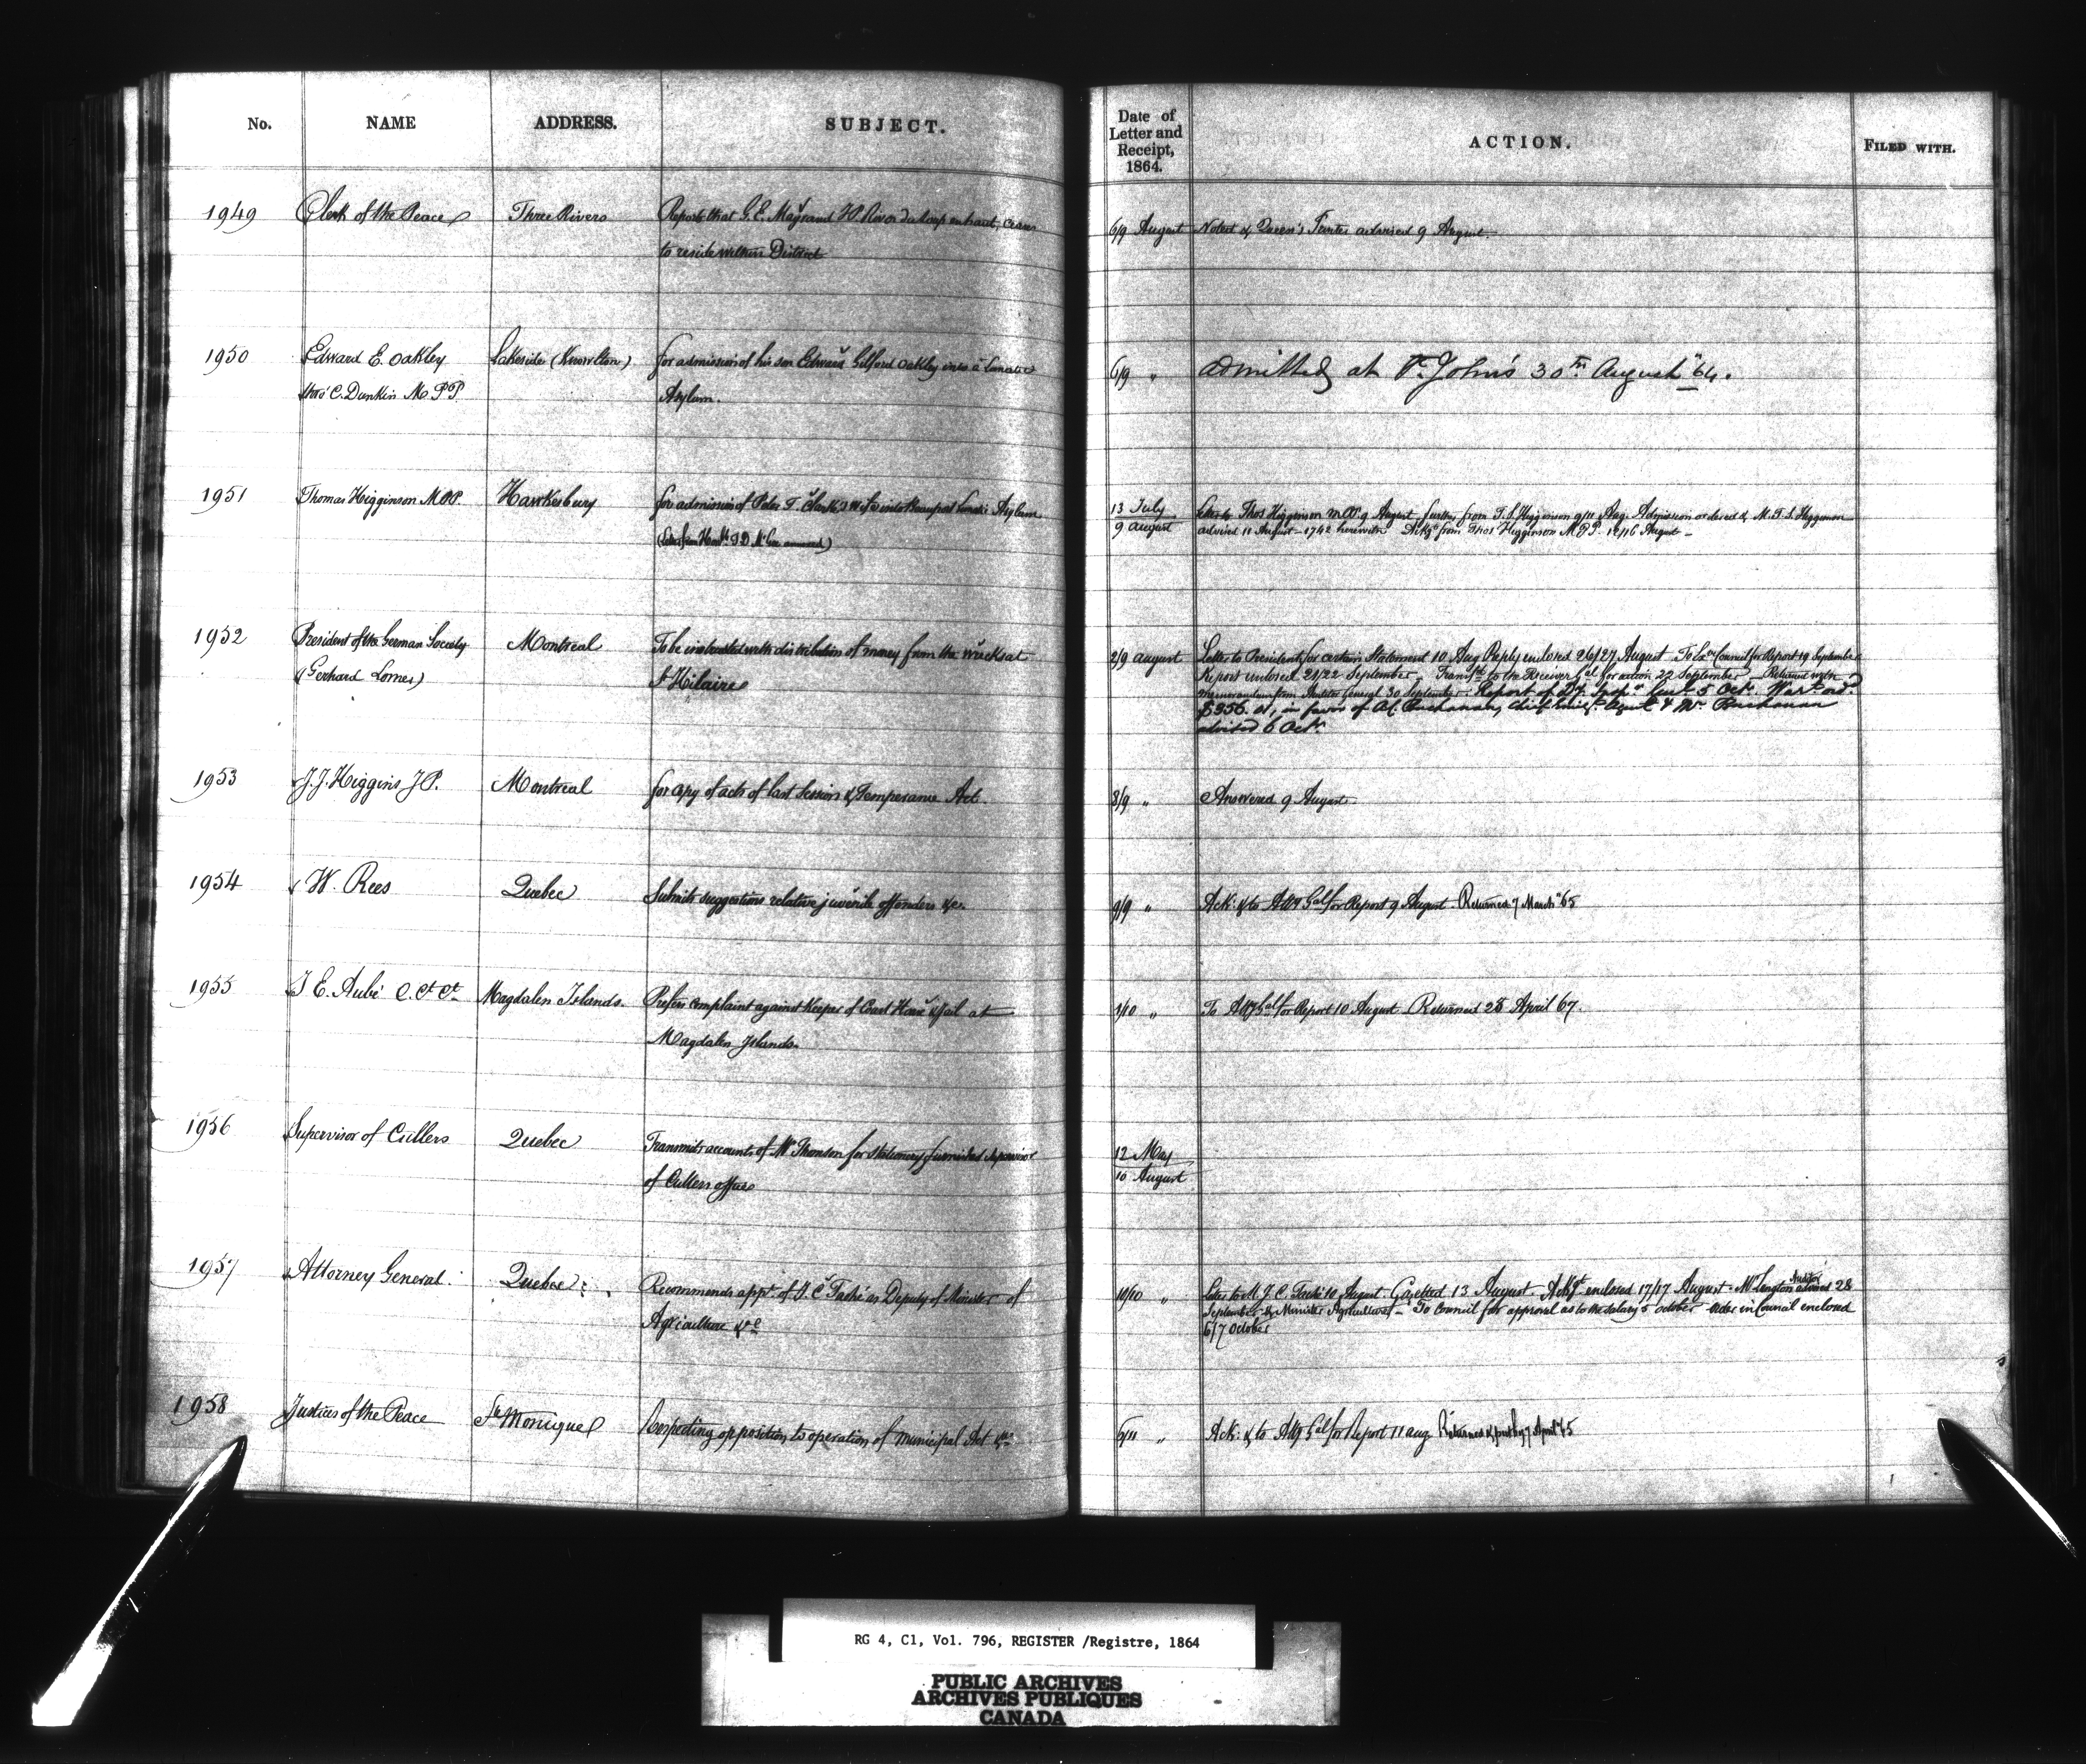 No. NAME ADDRESS. SUBJECT.
Date of
Letter and
Receipt,
1864.
ACTION. FILED WITH.
1949 Clerk of the Peace Three Rivers Reports that G. E. Mayrand J.P. Riviere du Loup en haut, ceases
to reside within District
6/9 August Noted & Queen's Printer advised 9 August.
1950 Edward E. Oakley Lakeside (Knowlton) for admission of his son Edward Gilford Oakley into a Lunatic
thro' C. Dunkin M.P.P. Asylum.
6/9 " admitted at St. John's 30th August "64.
1951 Thomas Higginson M.P.P. Hawkesbury for admission of Peter T. Clark's Wife into Beauport Lunatic Asylum
(Letter from Honble T. D. McGee annexed)
13 July Letter to Thos Higginson M.P.P. 9 August further from T. S. Higginson 9/11 Aug. Admission ordered & M. T. S. Higginson
9 august advised 11 August - 1742 herewith Ackgt from Thos Higginson M.P.P. 16 August -
1952 President of the German Society Montreal To be instructed with distribution of money from the wrecks at
(Gerhard Lomer) St Hilaire
2/9 august Letter to President for certain Statement 10 Aug Reply enclosed 26/27 August To Exve Council for Report 19 September
Report enclosed 21/22 September - Transfd to the Receiver Gal for action 22 September - Returned with
memorandum from Auditor General 30 September. Report of Dy. Inspr Genl 5 Octr. Wart ord.
$356. in favor of A.C. Buchanan, Chief Emigt. Agent & Mr. Buchanan
advised 6 Octr.
1953 J. J. Higgins J.P. Montreal for copy of acts of last Session & Temperance Act.
8/9 " Answered 9 August.
1954 W. Rees Quebec Submits suggestions relative juvenile offenders &c.
9/9 " Ack: & to Atty Gal for Report 9 August. Returned 7 March "65
1955 J E. Aubé C. Ct Ct. Magdalen Islands. Prefers complaint against Keeper of Court House & Jail at
Magdalen Islands.
1/10 " To Atty Gal for Report 10 August Returned 28 April 67.
1956 Supervisor of Cullers Quebec Transmits accounts of Mr Thomson for stationery furnished Supervisor
of Cullers office
12 May
10 August
1957 Attorney General. Quebec Recommends appt. of J. C. Taché as Deputy of Minister of
Agriculture &c
10/10 " Letter to M. J. C. Taché 10 August Gazetted 13 August - Ackgt enclosed 17/17 August - Mr Langton Auditor advised 28
September & Minister Agriculture - To Council for approval as to the salary 5 October - order in Council enclosed
6/7 October
1958 Justices of the Peace Ste Monique Respecting opposition to operation of Municipal Act &c
6/11 " Ack: & to Atty Gal for Report 11 aug Returned 7 April 65
RG 4, C1, Vol. 796, REGISTER /Registre, 1864
PUBLIC ARCHIVES
ARCHIVES PUBLIQUES
CANADA